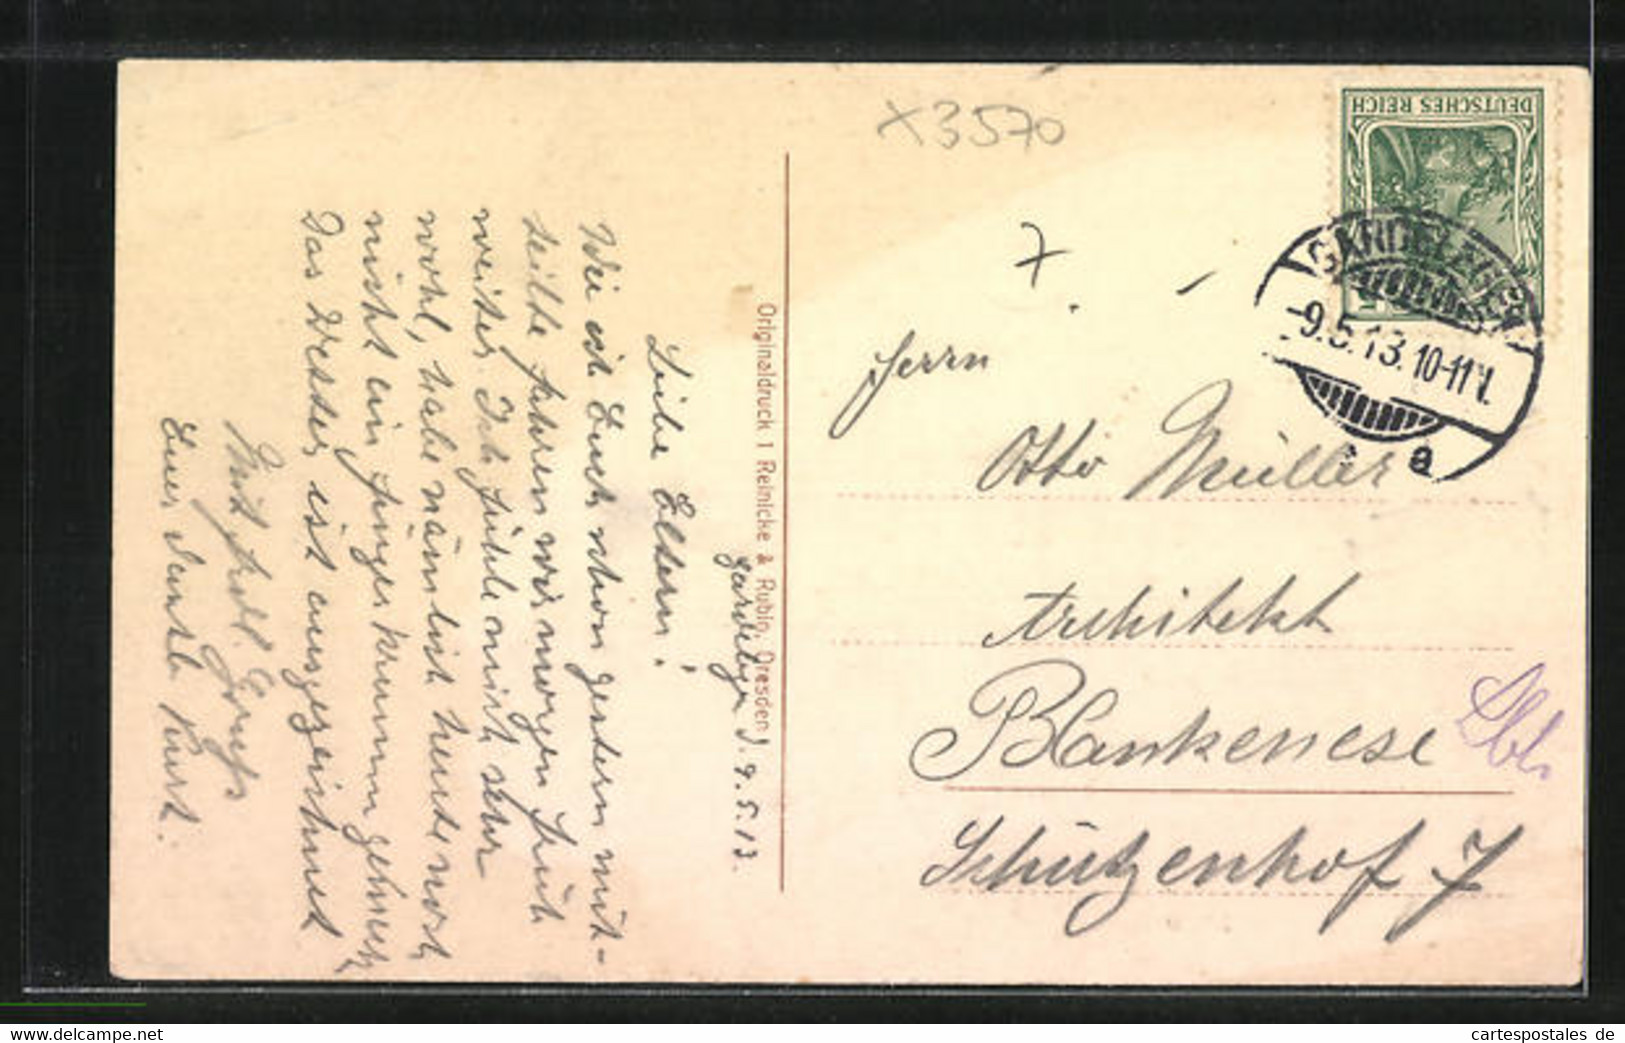 x3570
DEUTSCHES REICH
GARDELEGEN
-9.5.13. 10-11 V.
a
7.
Herrn
Otto Müller
Architekt
Blankenese
Schützenhof 7
Originaldruck 1 Reinicke & Rubin, Dresden
9.5.13.
Liebe Eltern!
Wie ich Euch schon gestern mit-
teilte fahren wir morgen früh
weiter. Ich fühle mich sehr
wohl, habe nämlich heute noch
nicht ein Finger krumm gemacht,
Das Wetter ist ausgezeichnet
Mit frdl. Gruß
Euer dankb. Kurt.
cartespostales de